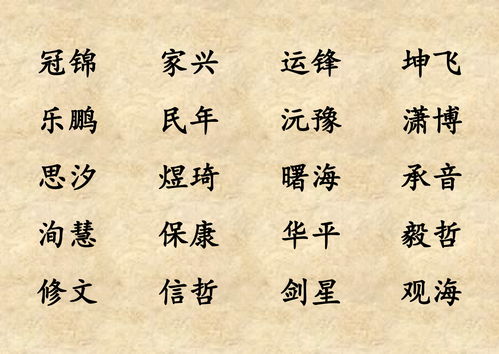 冠锦 家兴 运锋 坤飞
乐鹏 民年 沅豫 潇博
思汐 煜琦 曙海 承音
洵慧 保康 华平 毅哲
修文 信哲 剑星 观海